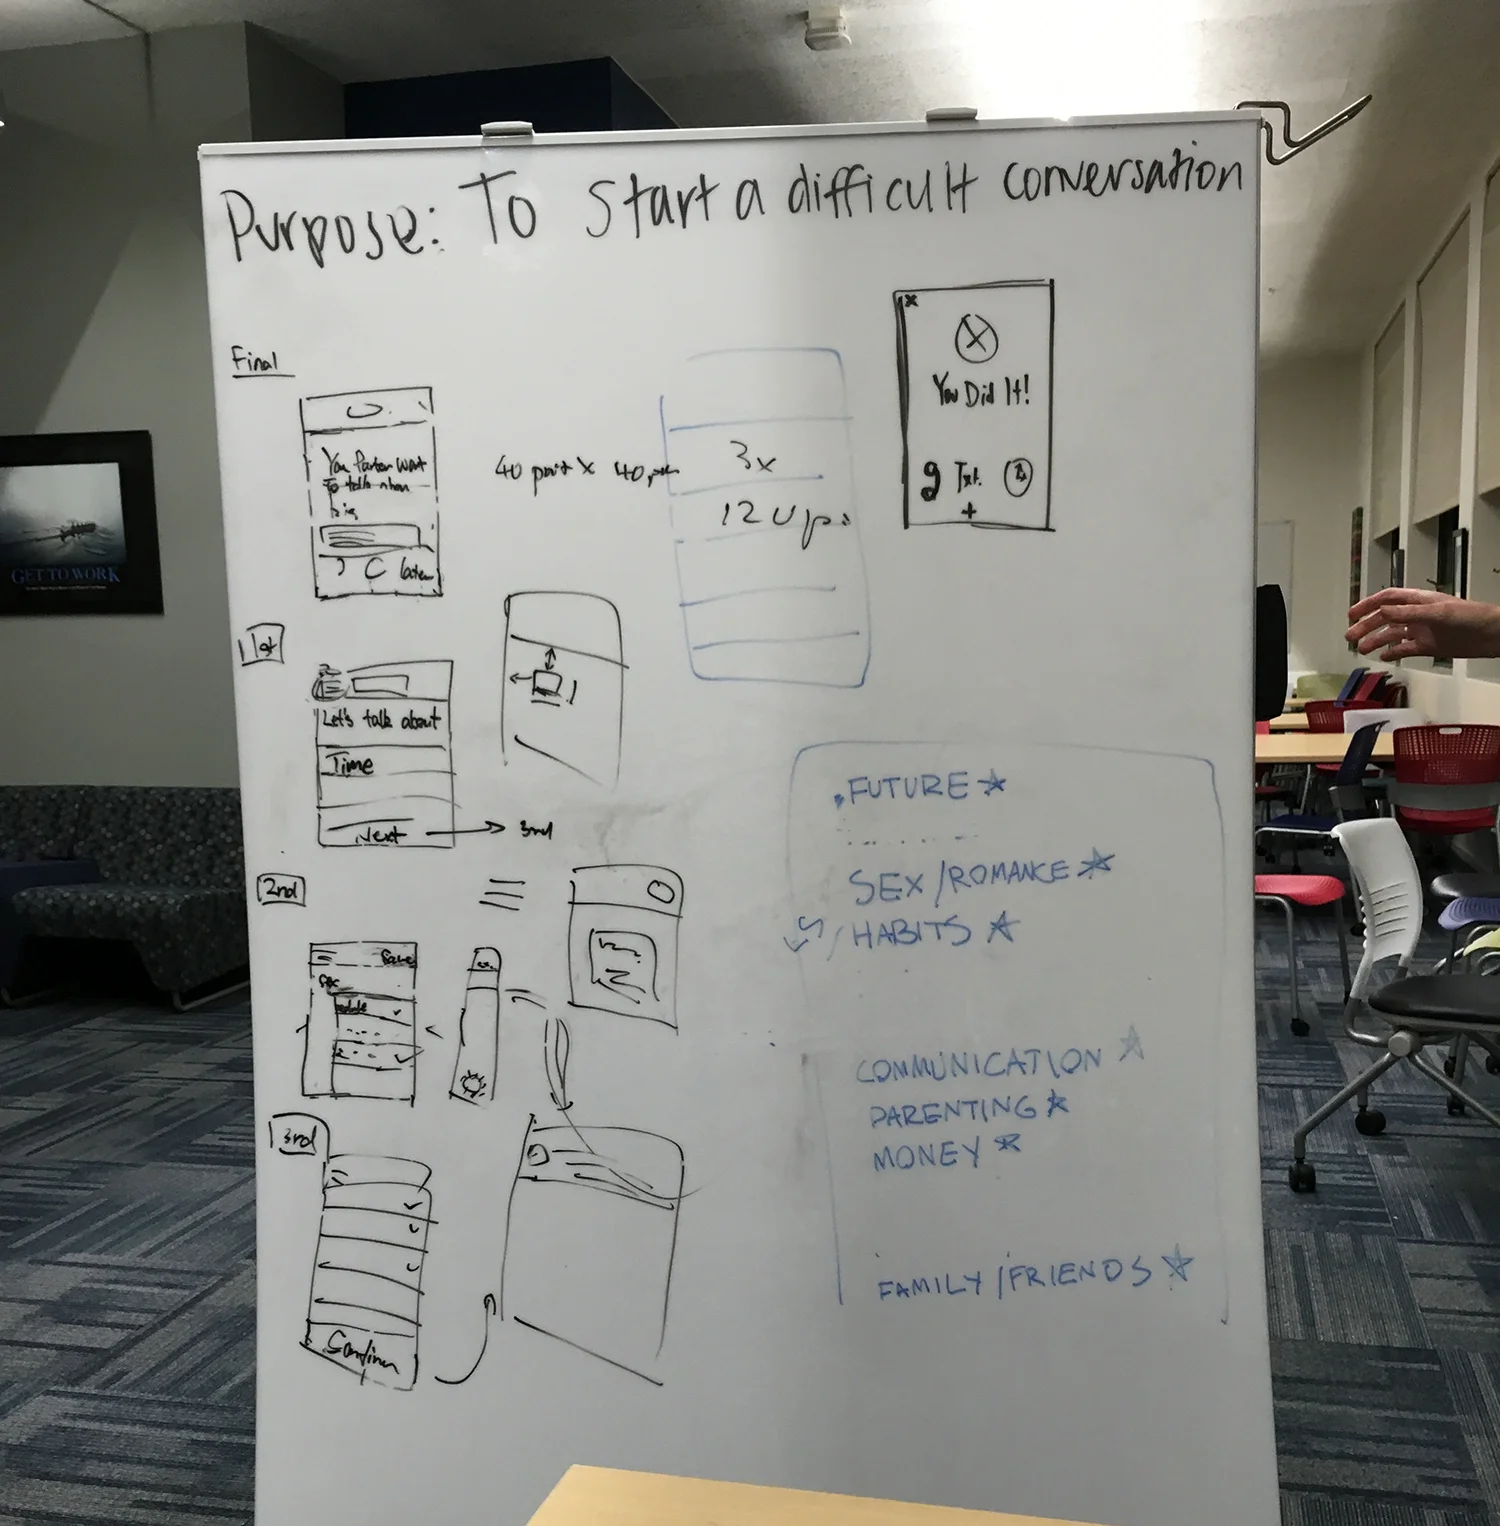 Purpose: To Start a difficult conversation
Final
You Parter want
To talk
later
40 point x 40
3x
120
x
You Did It!
Txt.
+
1st
Let's talk about
Time
Next
3rd
2nd
Save
Sex
3rd
Confirm
FUTURE
SEX/ROMANCE
HABITS
COMMUNICATION
PARENTING
MONEY
FAMILY/FRIENDS
GET TO WORK